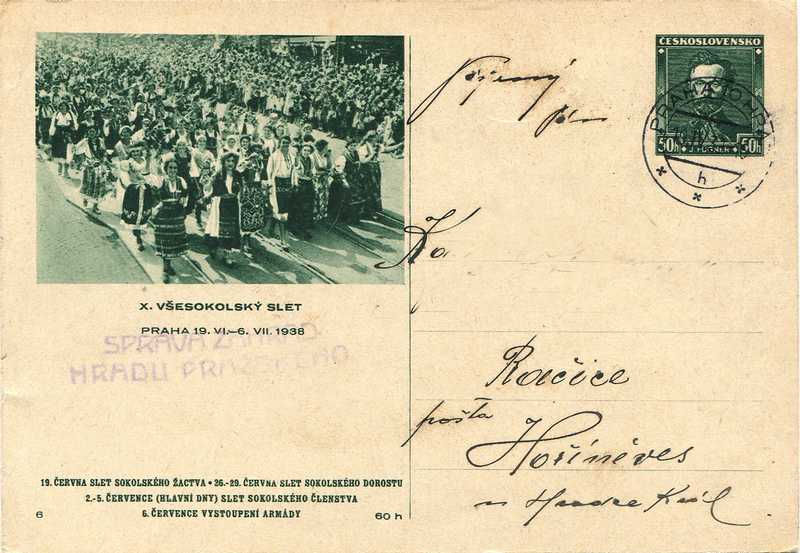 X. VŠESOKOLSKÝ SLET
PRAHA 19. VI.–6. VII. 1938
SPRÁVA
HRADU
19. ČERVNA SLET SOKOLSKÉHO ŽACTVA • 26.-29. ČERVNA SLET SOKOLSKÉHO DOROSTU
2.-5. ČERVENCE (HLAVNÍ DNY) SLET SOKOLSKÉHO ČLENSTVA
6. ČERVENCE VYSTOUPENÍ ARMÁDY
6
60 h
ČESKOSLOVENSKO
50h J. FÜGNER 50h
PRAHA
h
Račice
pošta
Hořiněves
u Hradce Král